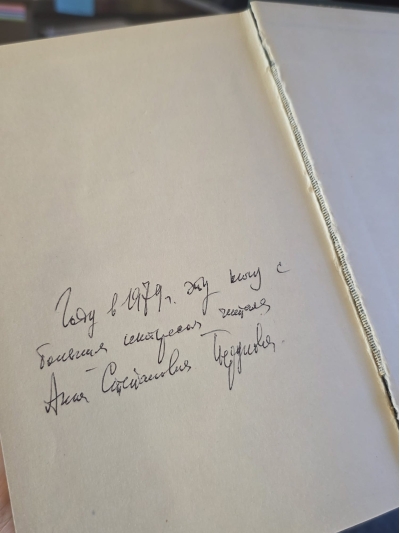 Году в 1979 г. эту книгу с
большим интересом читала
Анна Степановна